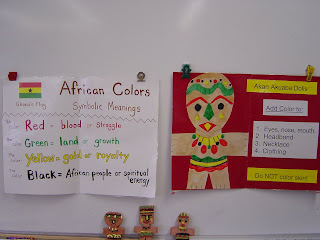 African Colors
Ghana's Flag
Symbolic Meanings
The Color Red = blood or struggle
The Color Green = land or growth
The Color Yellow = gold or royalty
The Color Black = African people or spiritual
energy
Akan Akuaba Dolls
Add Color to:
1. Eyes, nose, mouth
2. Headband
3. Necklace
4. Clothing
Do NOT color skin!